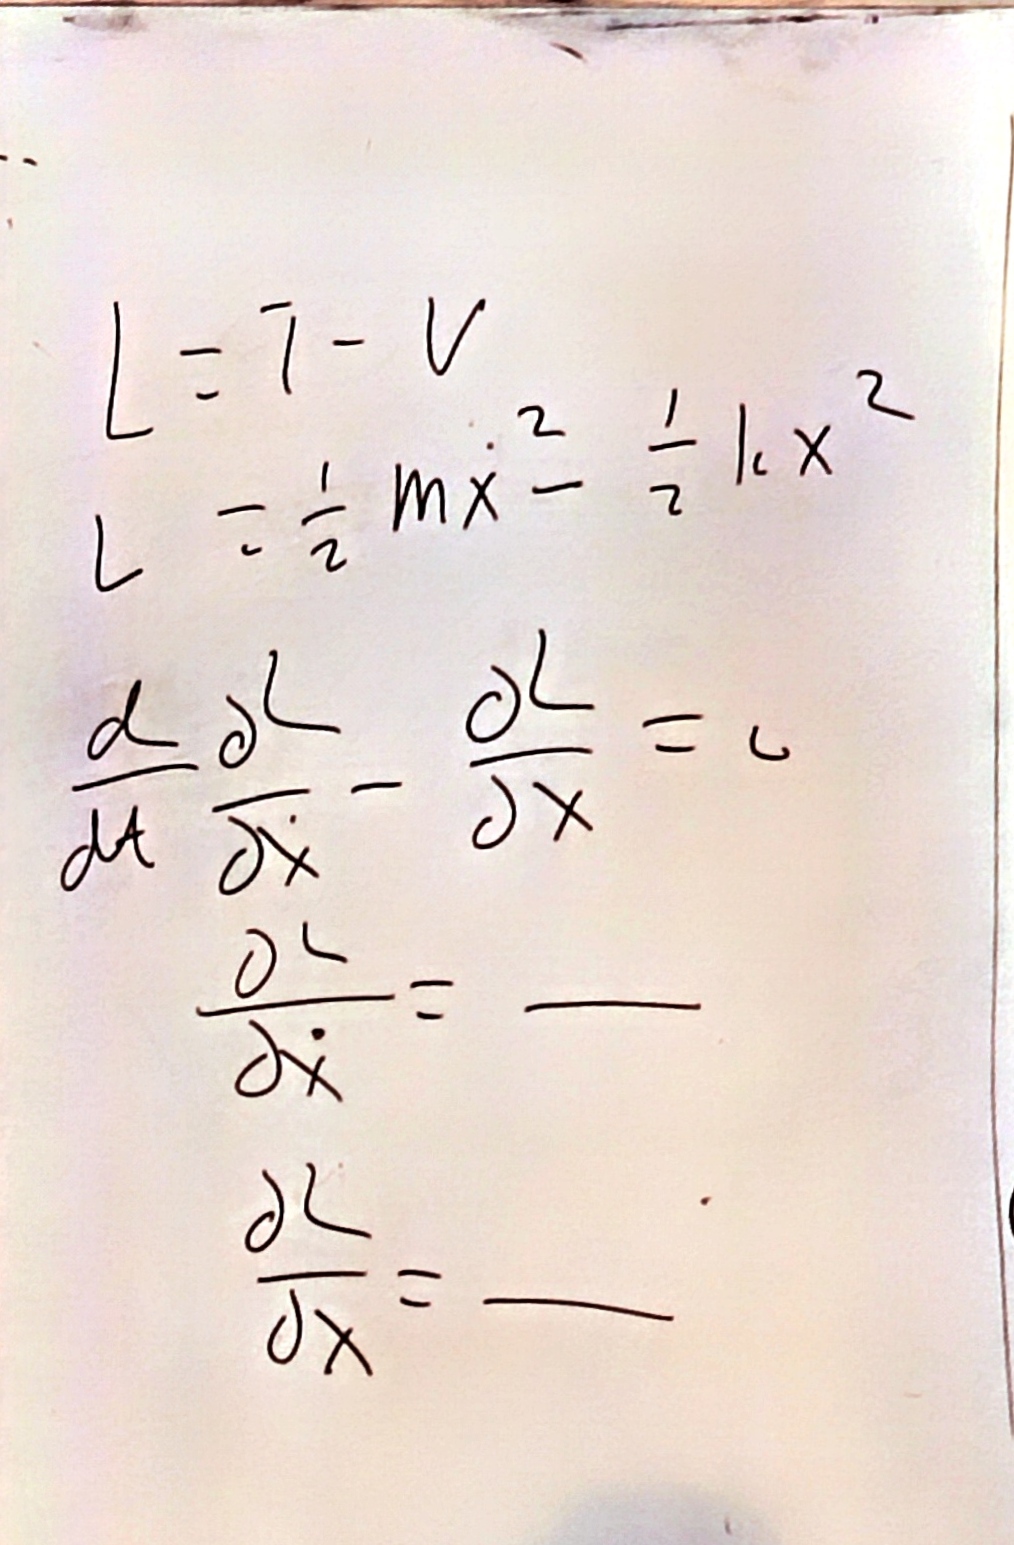 L = T - V
L = 1/2 mẋ² - 1/2 kx²
d/dt ∂L/∂ẋ - ∂L/∂x = 0
∂L/∂ẋ = ___
∂L/∂x = ___